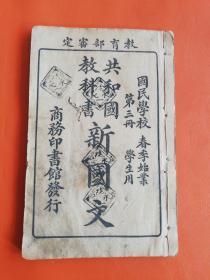 教育部審定
國民學校
第三冊
春季始業
學生用
共和國
教科書
新國文
商務印書館發行